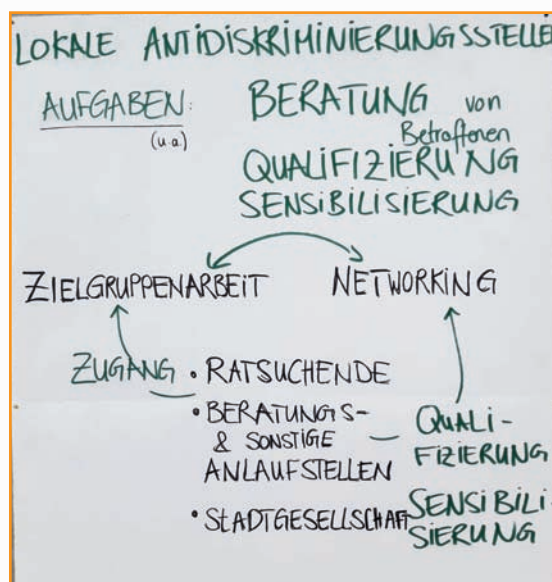 LOKALE ANTIDISKRIMINIERUNGSSTELLE
AUFGABEN: BERATUNG von
(u.a.) Betroffenen
QUALIFIZIERUNG
SENSIBILISIERUNG
ZIELGRUPPENARBEIT NETWORKING
ZUGANG • RATSUCHENDE
• BERATUNGS-
& SONSTIGE
ANLAUFSTELLEN
• STADTGESELLSCHAFT
QUALI-
FIZIERUNG
SENSIBILI-
SIERUNG